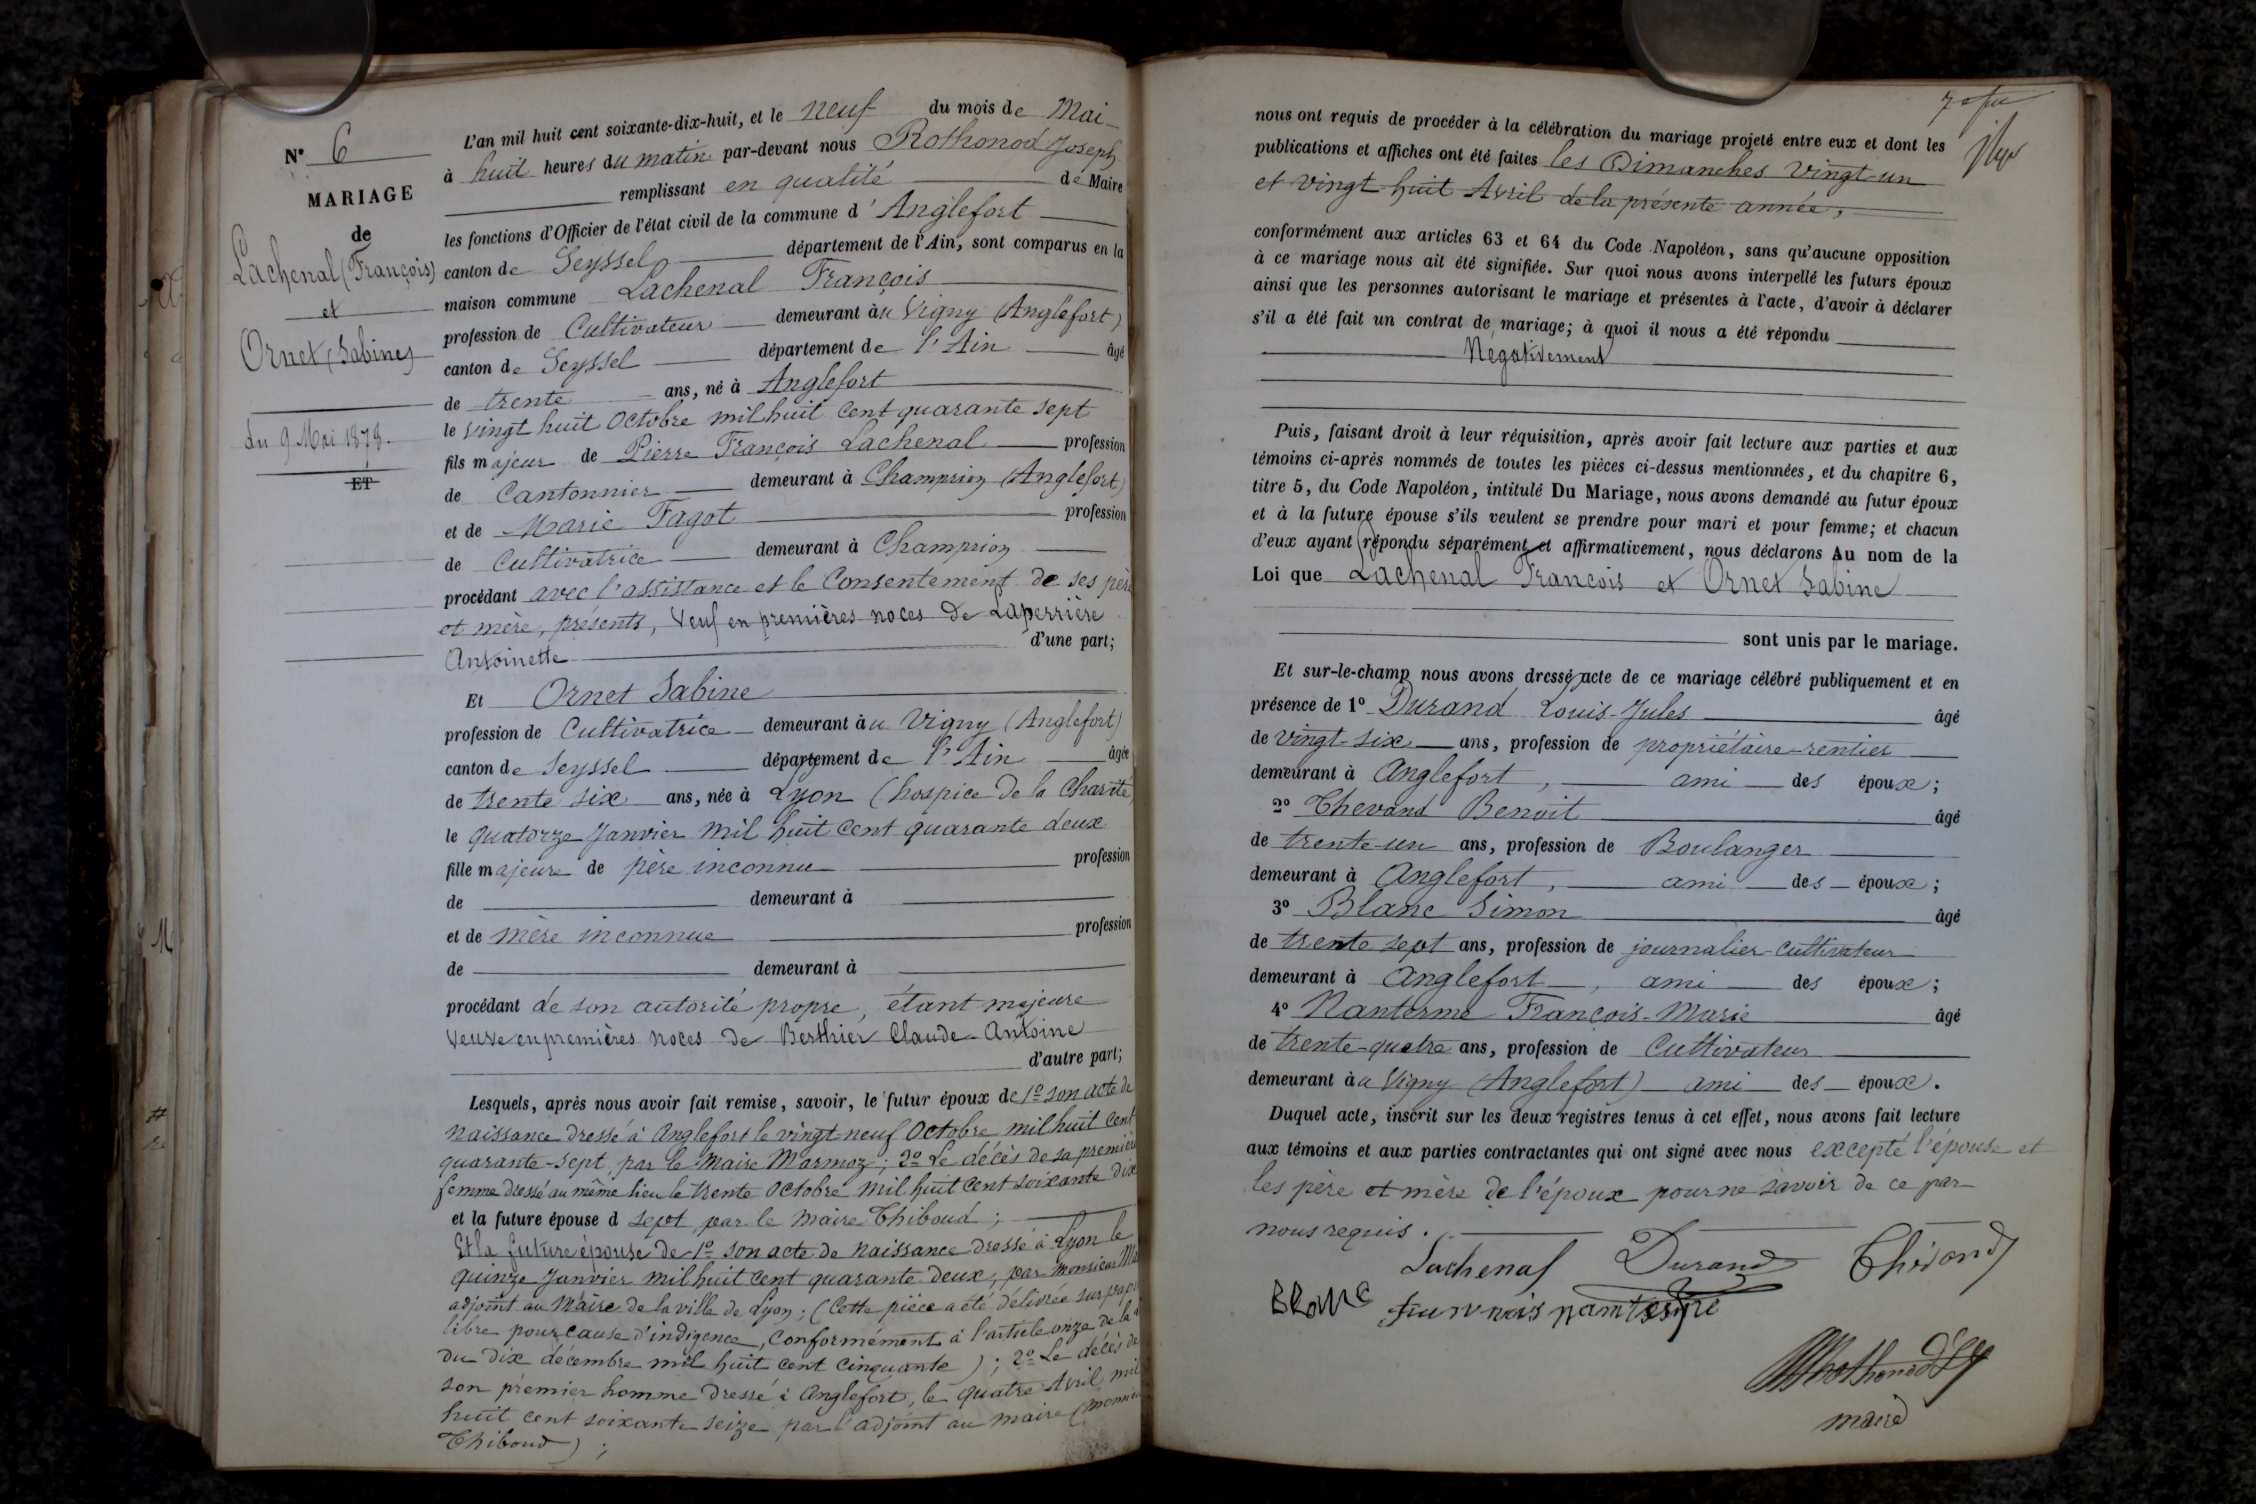 N° 6
MARIAGE
de
Lachenal (François)
et
Ornet (Sabine)
du 9 Mai 1878.
ET
L'an mil huit cent soixante-dix-huit, et le neuf du mois de Mai
à huit heures du matin par-devant nous Rothonod Joseph
remplissant en qualité de Maire
les fonctions d'Officier de l'état civil de la commune d'Anglefort
canton de Seyssel département de l'Ain, sont comparus en la
maison commune Lachenal François
profession de Cultivateur demeurant au Vigny (Anglefort)
canton de Seyssel département de l'Ain âgé
de trente ans, né à Anglefort
le vingt huit Octobre mil huit cent quarante sept
fils majeur de Pierre François Lachenal profession
de Cantonnier demeurant à Champrion (Anglefort)
et de Marie Fagot profession
de Cultivatrice demeurant à Champrion
procédant avec l'assistance et le Consentement de ses père
et mère, présents, Veuf en premières noces de Laperrière
Antoinette d'une part;
Et Ornet Sabine
profession de Cultivatrice demeurant au Vigny (Anglefort)
canton de Seyssel département de l'Ain âgée
de trente six ans, née à Lyon (hospice de la Charité
le quatorze Janvier mil huit cent quarante deux
fille majeure de père inconnu profession
de demeurant à
et de mère inconnue profession
de demeurant à
procédant de son autorité propre, étant majeure
Veuve en premières noces de Berthier Claude-Antoine
d'autre part;
Lesquels, après nous avoir fait remise, savoir, le futur époux de 1° son acte de
naissance dressé à Anglefort le vingt-neuf Octobre mil huit cent
quarante-sept par le Maire Marmoz; 2° Le décès de sa première
femme dressé au même lieu le trente Octobre mil huit cent soixante dix
et la future épouse d sept par le Maire Thiboud;
Et la future épouse de 1° son acte de naissance dressé à Lyon le
quinze Janvier mil huit cent quarante deux, par Monsieur
adjoint au Maire de la ville de Lyon; (Cette pièce a été délivrée sur papi
libre pour cause d'indigence, conformément à l'article onze de la
du dix décembre mil huit cent cinquante); 2° Le décès de
son premier homme dressé à Anglefort, le quatre Avril mil
huit cent soixante seize par l'adjoint au maire
Thiboud);
nous ont requis de procéder à la célébration du mariage projeté entre eux et dont les
publications et affiches ont été faites les Dimanches vingt-un
et vingt huit Avril de la présente année,
conformément aux articles 63 et 64 du Code Napoléon, sans qu'aucune opposition
à ce mariage nous ait été signifiée. Sur quoi nous avons interpellé les futurs époux
ainsi que les personnes autorisant le mariage et présentes à l'acte, d'avoir à déclarer
s'il a été fait un contrat de mariage; à quoi il nous a été répondu
Négativement
Puis, faisant droit à leur réquisition, après avoir fait lecture aux parties et aux
témoins ci-après nommés de toutes les pièces ci-dessus mentionnées, et du chapitre 6,
titre 5, du Code Napoléon, intitulé Du Mariage, nous avons demandé au futur époux
et à la future épouse s'ils veulent se prendre pour mari et pour femme; et chacun
d'eux ayant répondu séparément et affirmativement, nous déclarons Au nom de la
Loi que Lachenal François et Ornet Sabine
sont unis par le mariage.
Et sur-le-champ nous avons dressé acte de ce mariage célébré publiquement et en
présence de 1° Durand Louis-Jules âgé
de vingt-six ans, profession de propriétaire-rentier
demeurant à Anglefort, ami des époux;
2° Thevand Benoit âgé
de trente-un ans, profession de Boulanger
demeurant à Anglefort, ami des époux;
3° Blanc Simon âgé
de trente sept ans, profession de journalier-cultivateur
demeurant à Anglefort, ami des époux;
4° Nanterme François-Marie âgé
de trente-quatre ans, profession de Cultivateur
demeurant au Vigny (Anglefort) ami des époux.
Duquel acte, inscrit sur les deux registres tenus à cet effet, nous avons fait lecture
aux témoins et aux parties contractantes qui ont signé avec nous excepté l'épouse et
les père et mère de l'époux pour ne savoir de ce par
nous requis.
Lachenal Durand
BLANC
maire